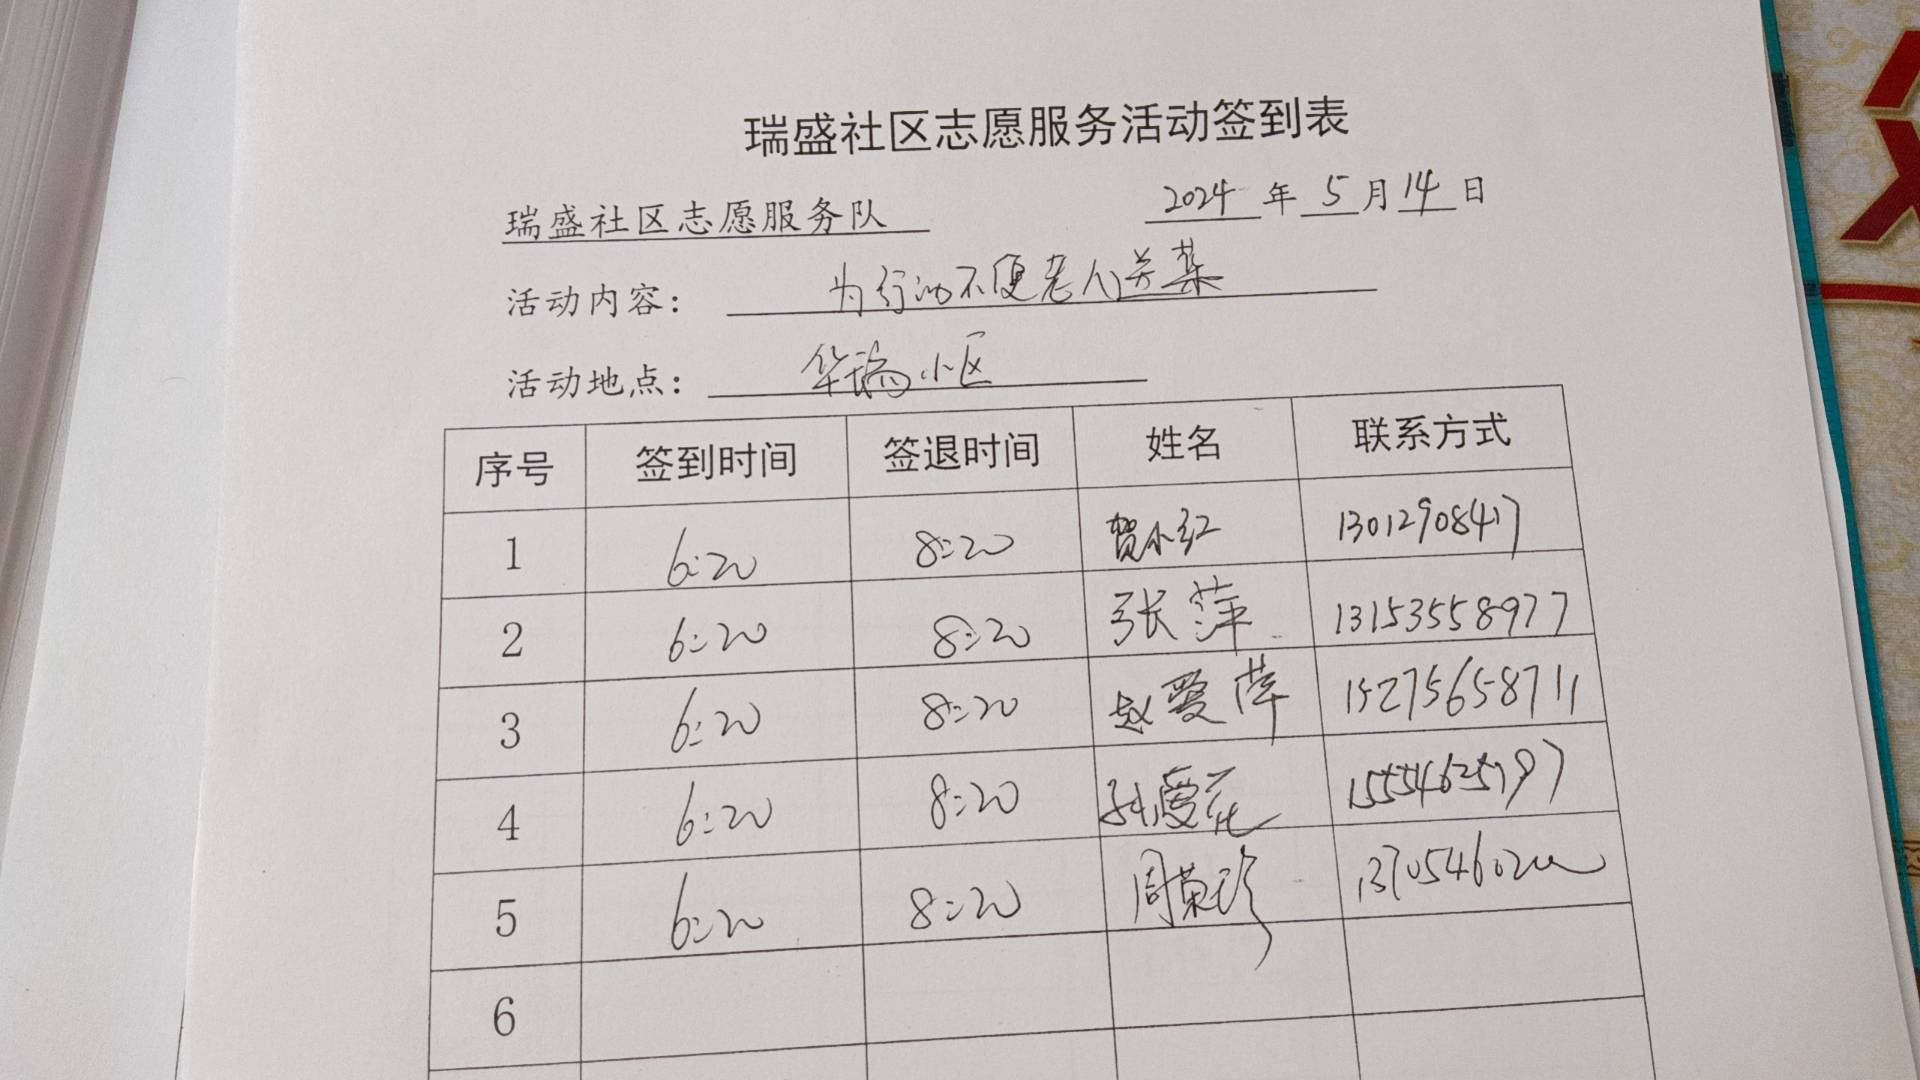 瑞盛社区志愿服务活动签到表
瑞盛社区志愿服务队 2024 年 5 月 14 日
活动内容： 为行动不便老人送菜
活动地点： 华瑞小区
序号 签到时间 签退时间 姓名 联系方式
1 6:20 8:20 贺小红 13012908417
2 6:20 8:20 张萍 13153558977
3 6:20 8:20 赵爱萍 15275658711
4 6:20 8:20 孙爱花
5 6:20 8:20 周荣珍
6